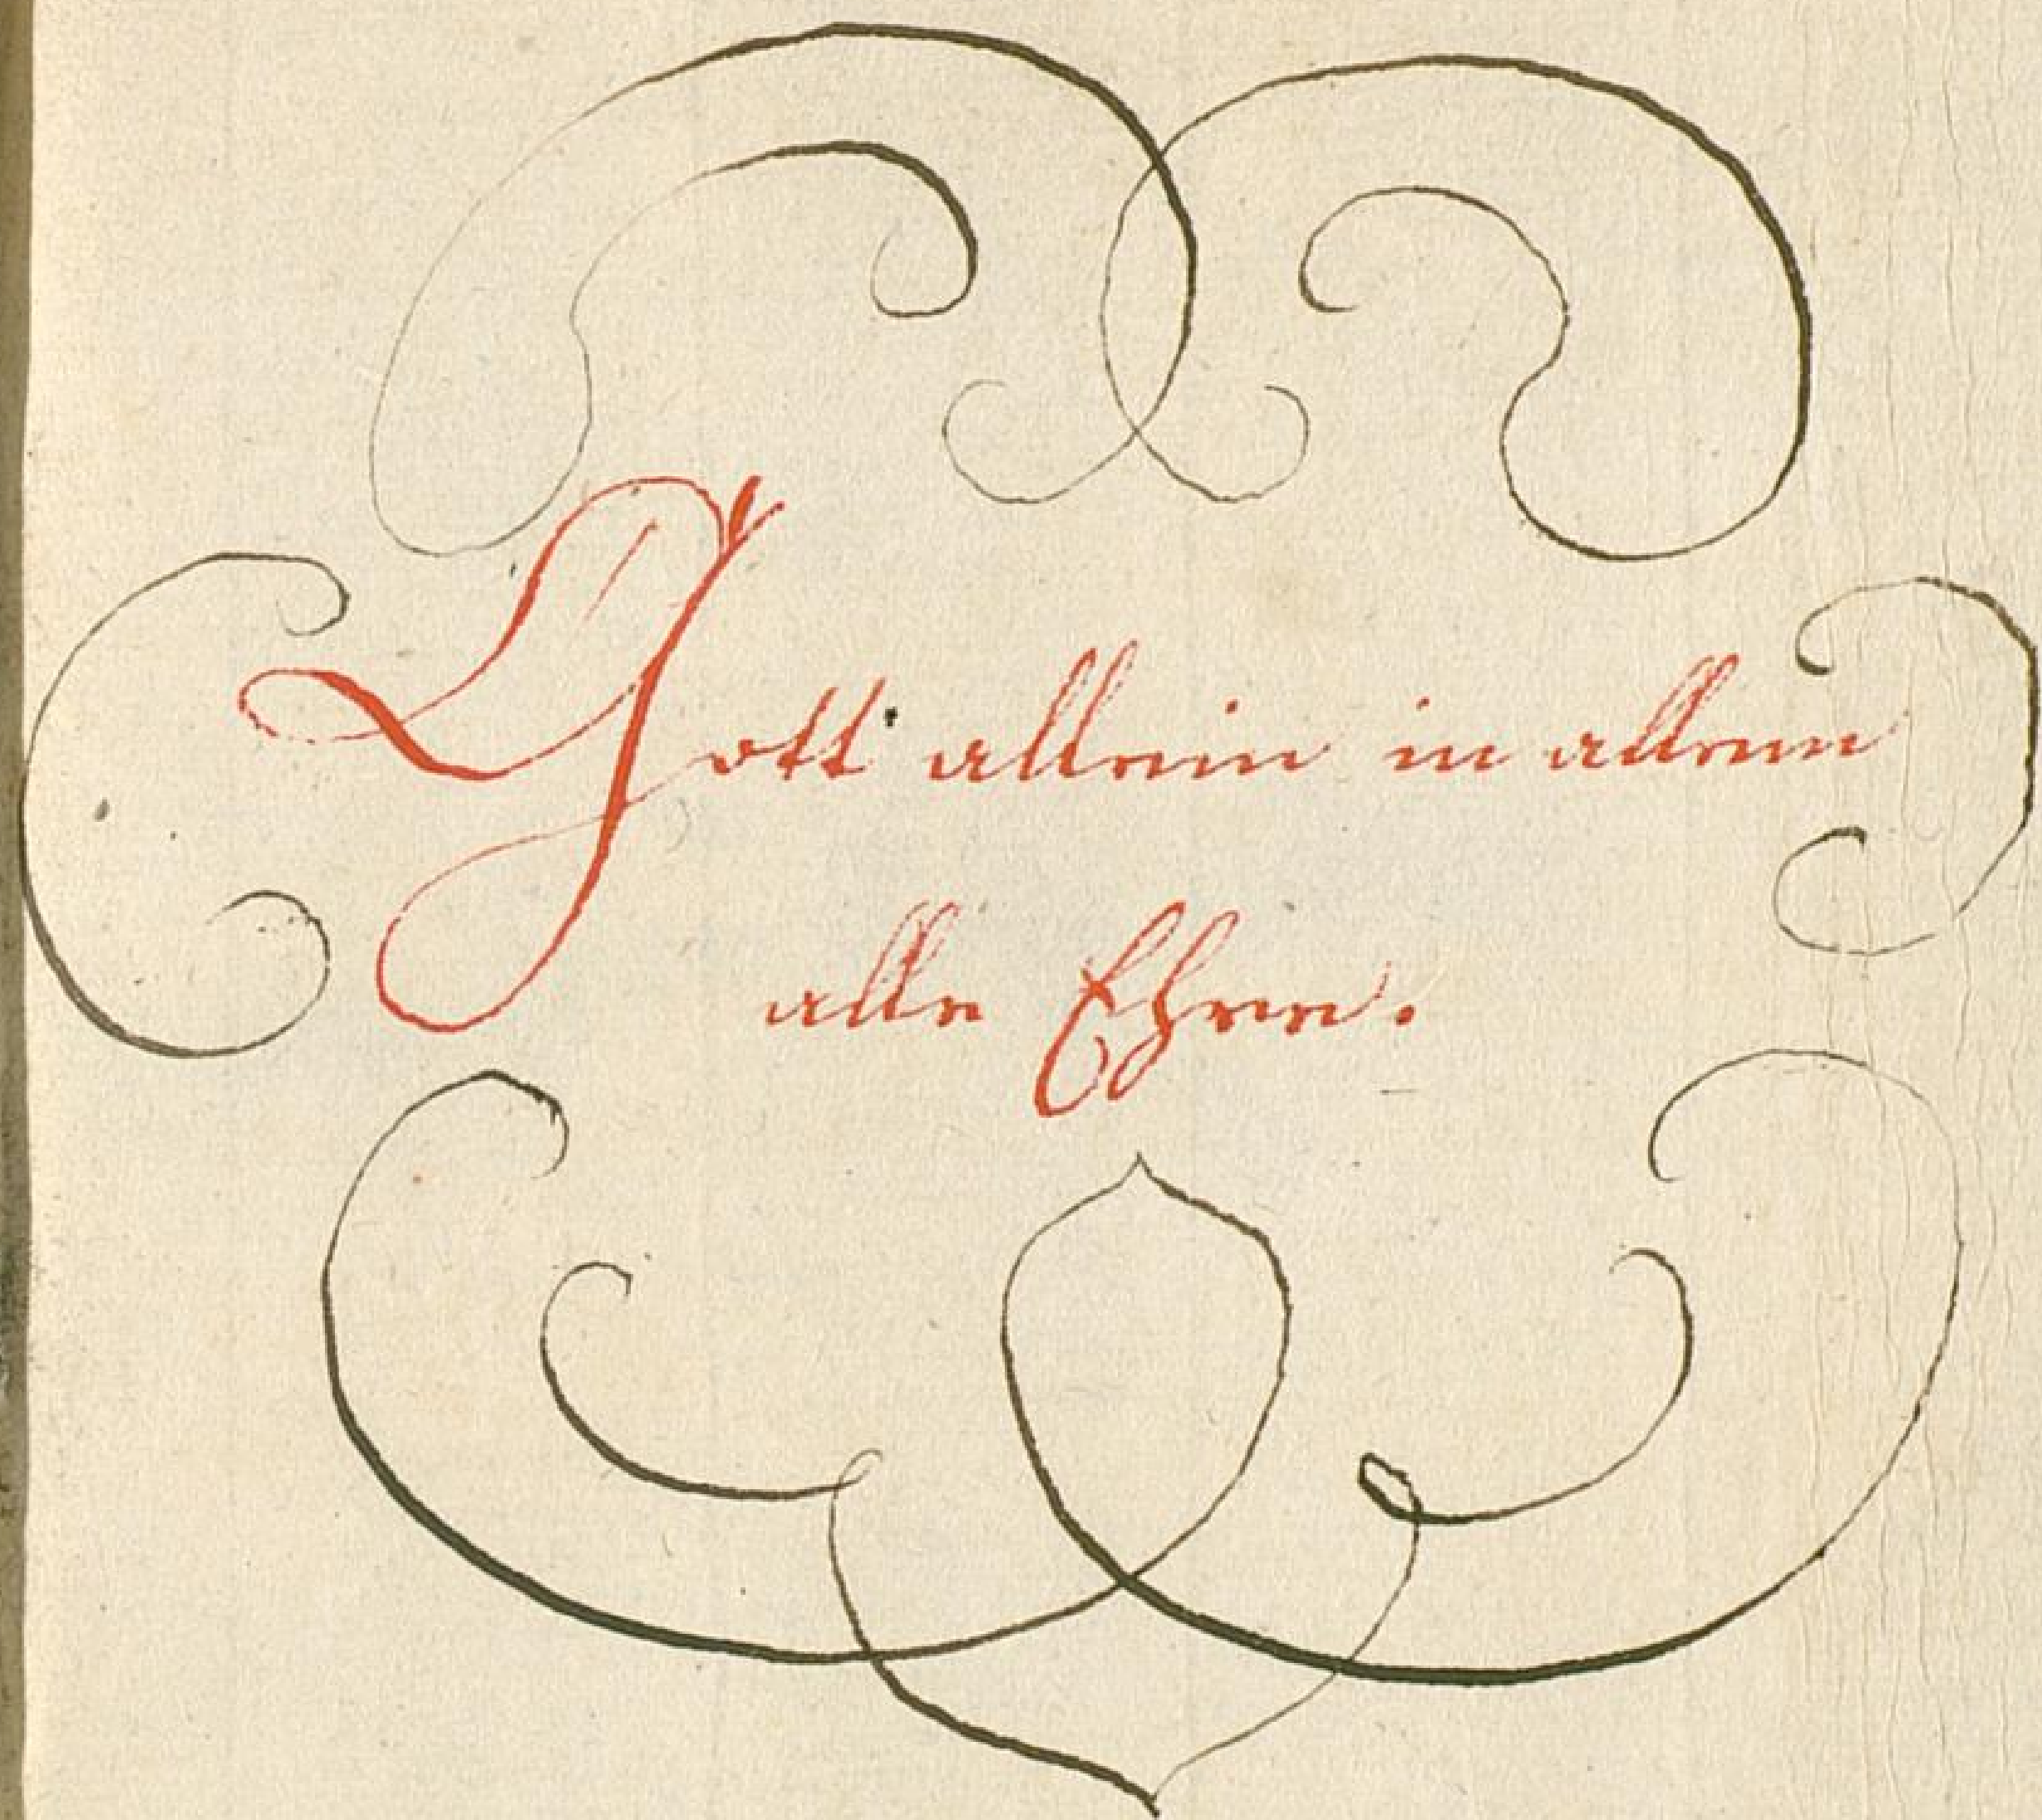 Gott allein in allem
alle Ehre.